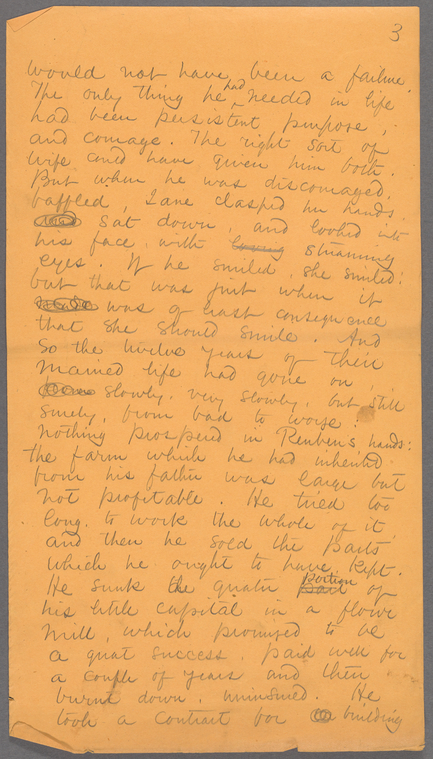 3
would not have been a failure.
The only thing he had needed in life
had been persistent purpose,
and courage. The right sort of
wife could have given him both.
But when he was discouraged,
baffled, Jane clasped her hands,
sat down, and looked into
his face with loving streaming
eyes. If he smiled, she smiled:
but that was just when it
was of least consequence
that she should smile. And
so the twelve years of their
married life had gone on
slowly, very slowly, but still
surely, from bad to worse:
nothing prospered in Reuben's hands:
the farm which he had inherited
from his father was large but
not profitable. He tried too
long, to work the whole of it,
and then he sold the parts
which he ought to have kept.
He sunk the greater part portion of
his little capital in a flour
mill, which promised to be
a great success, paid well for
a couple of years and then
burnt down, uninsured. He
took a contract for building